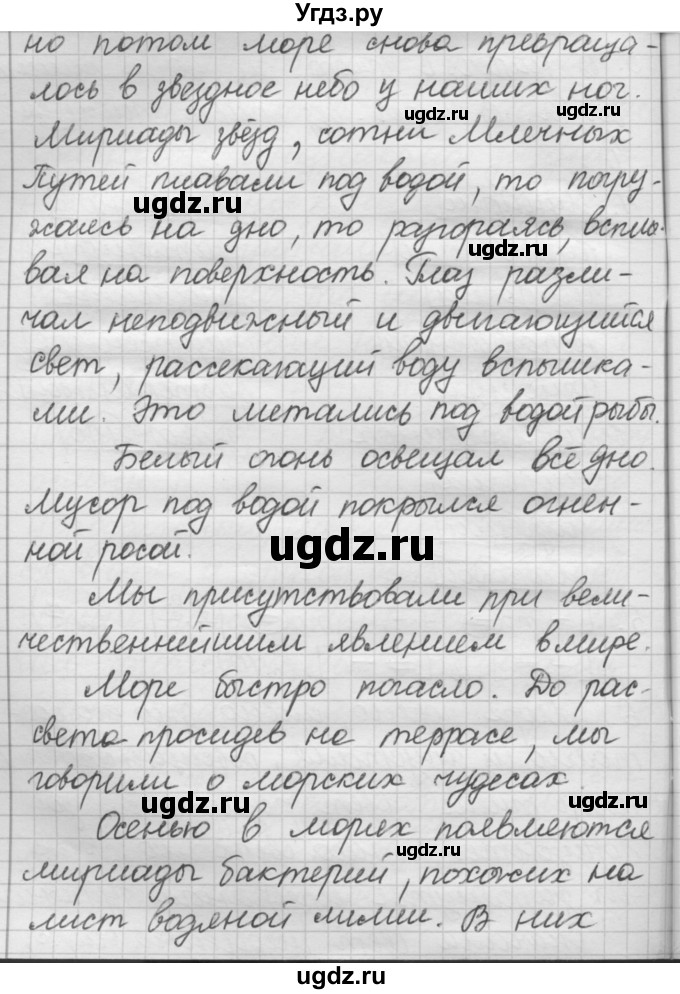 Угдз.ру
но потом море снова превраща-
лось в звездное небо у наших ног.
ugdz.ru
ugdz.ru
Мириады звёзд, сотни Млечных
Путей плавали под водой, то погру-
ugdz.ru
жаясь на дно, то разгораясь, всплы-
ugdz.ru
вая на поверхность. Глаз разли-
чал неподвижный и двигающийся
свет, рассекающий воду вспышка-
ugdz.ru
ugdz.ru
ми. Это метались под водой рыбы.
Белый огонь освещал всё дно.
Мусор под водой покрылся огнен-
ной росой.
ugdz.ru
Мы присутствовали при вели-
чественнейшим явлением в мире.
ugdz.ru
ugdz.ru
Море быстро погасло. До рас-
света просидев на террасе, мы
ugdz.ru
говорили о морских чудесах.
ugdz.ru
Осенью в морях появляются
ugdz.ru
мириады бактерий, похожих на
лист водяной лилии. В них
ugdz.ru